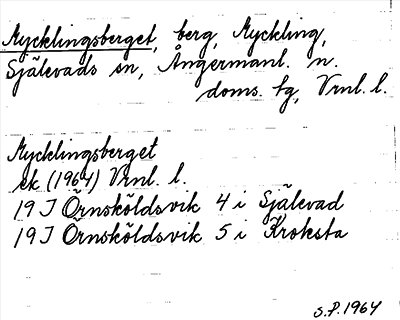 Mycklingsberget, berg, Myckling,
Själevads sn, Ångermanl. n.
doms. tg, Vrnl. l.
Mycklingsberget
ek (1964) Vrnl. l.
19 J Örnsköldsvik 4 i Själevad
19 J Örnsköldsvik 5 i Kroksta
S.P. 1964